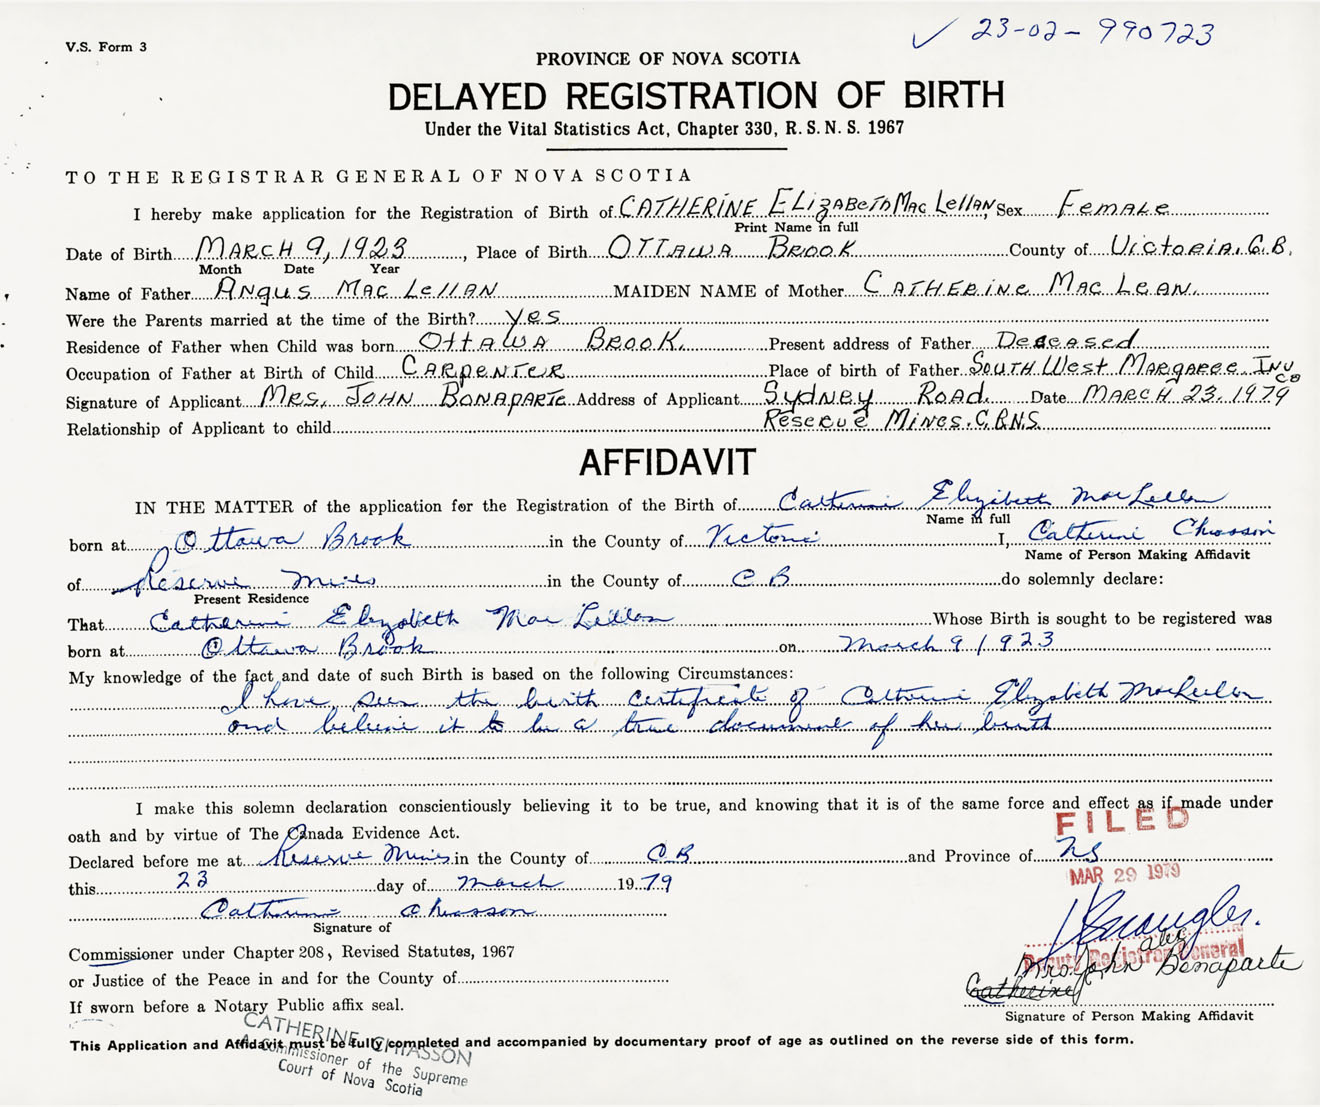 ✓ 23-02-990723
V.S. Form 3
PROVINCE OF NOVA SCOTIA
DELAYED REGISTRATION OF BIRTH
Under the Vital Statistics Act, Chapter 330, R. S. N. S. 1967
TO THE REGISTRAR GENERAL OF NOVA SCOTIA
I hereby make application for the Registration of Birth of CATHERINE ELIZABETH Mac Lellan, Sex FEMALE
Print Name in full
Date of Birth MARCH 9, 1923, Place of Birth OTTAWA BROOK County of Victoria. C.B.
Month Date Year
Name of Father Angus Mac Lellan MAIDEN NAME of Mother CATHERINE MAC LEAN.
Were the Parents married at the time of the Birth? yes
Residence of Father when Child was born OTTAWA BROOK. Present address of Father Deceased
Occupation of Father at Birth of Child CARPENTER Place of birth of Father South West Margaree Inv Co
Signature of Applicant MRS. JOHN BONAPARTE Address of Applicant Sydney ROAD. Date MARCH 23, 1979
Relationship of Applicant to child Reserve Mines. C.B.N.S.
AFFIDAVIT
IN THE MATTER of the application for the Registration of the Birth of Catherine Elizabeth MacLellan
Name in full
born at Ottawa Brook in the County of Victoria I, Catherine Chiasson
Name of Person Making Affidavit
of Reserve Mines in the County of C B do solemnly declare:
Present Residence
That Catherine Elizabeth Mac Lellan Whose Birth is sought to be registered was
born at Ottawa Brook on March 9 1923
My knowledge of the fact and date of such Birth is based on the following Circumstances:
I have seen the birth certificate of Catherine Elizabeth MacLellan
and believe it to be a true document of her birth
I make this solemn declaration conscientiously believing it to be true, and knowing that it is of the same force and effect as if made under
oath and by virtue of The Canada Evidence Act.
FILED
Declared before me at Reserve Mines in the County of C.B and Province of NS
MAR 29 1979
this 23 day of March 1979
Catherine Chiasson
Signature of
Commissioner under Chapter 208, Revised Statutes, 1967
Deputy Registrar General
Mrs. John Alex Bonaparte
or Justice of the Peace in and for the County of
Catherine
If sworn before a Notary Public affix seal.
Signature of Person Making Affidavit
This Application and Affidavit must be fully completed and accompanied by documentary proof of age as outlined on the reverse side of this form.
CATHERINE CHIASSON
A Commissioner of the Supreme
Court of Nova Scotia